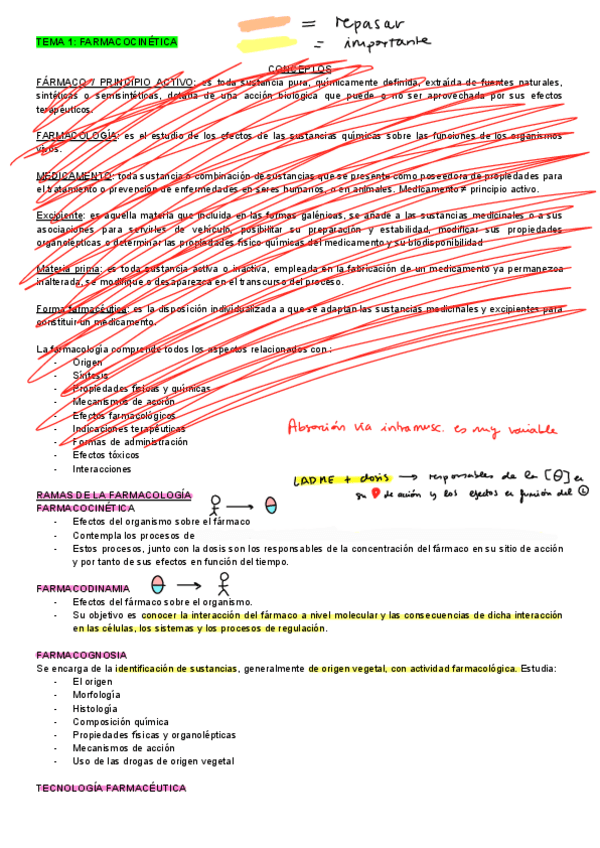 = repasar
= importante
TEMA 1: FARMACOCINÉTICA
CONCEPTOS
FÁRMACO / PRINCIPIO ACTIVO: es toda sustancia pura, químicamente definida, extraída de fuentes naturales,
sintéticas o semisintéticas, dotada de una acción biológica que puede o no ser aprovechada por sus efectos
terapéuticos.
FARMACOLOGÍA: es el estudio de los efectos de las sustancias químicas sobre las funciones de los organismos
vivos.
MEDICAMENTO: toda sustancia o combinación de sustancias que se presente como poseedora de propiedades para
el tratamiento o prevención de enfermedades en seres humanos, o en animales. Medicamento ≠ principio activo.
Excipiente: es aquella materia que incluida en las formas galénicas, se añade a las sustancias medicinales o a sus
asociaciones para servirles de vehículo, posibilitar su preparación y estabilidad, modificar sus propiedades
organolépticas o determinar las propiedades físico químicas del medicamento y su biodisponibilidad
Materia prima: es toda sustancia activa o inactiva, empleada en la fabricación de un medicamento ya permanezca
inalterada, se modifique o desaparezca en el transcurso del proceso.
Forma farmacéutica: es la disposición individualizada a que se adaptan las sustancias medicinales y excipientes para
constituir un medicamento.
La farmacología comprende todos los aspectos relacionados con:
- Origen
- Síntesis
- Propiedades físicas y químicas
- Mecanismos de acción
- Efectos farmacológicos
- Indicaciones terapéuticas
- Formas de administración
- Efectos tóxicos
- Interacciones
Absorción vía intramusc. es muy variable
LADME + dosis → responsables de la [θ] en
su de acción y los efectos en función del
RAMAS DE LA FARMACOLOGÍA
FARMACOCINÉTICA
- Efectos del organismo sobre el fármaco
- Contempla los procesos de
- Estos procesos, junto con la dosis son los responsables de la concentración del fármaco en su sitio de acción
y por tanto de sus efectos en función del tiempo.
FARMACODINAMIA
- Efectos del fármaco sobre el organismo.
- Su objetivo es conocer la interacción del fármaco a nivel molecular y las consecuencias de dicha interacción
en las células, los sistemas y los procesos de regulación.
FARMACOGNOSIA
Se encarga de la identificación de sustancias, generalmente de origen vegetal, con actividad farmacológica. Estudia:
- El origen
- Morfología
- Histología
- Composición química
- Propiedades físicas y organolépticas
- Mecanismos de acción
- Uso de las drogas de origen vegetal
TECNOLOGÍA FARMACÉUTICA